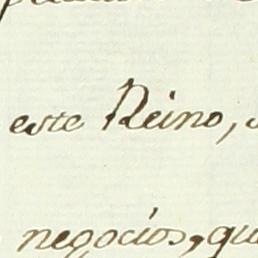 este Reino,
negocios, qu